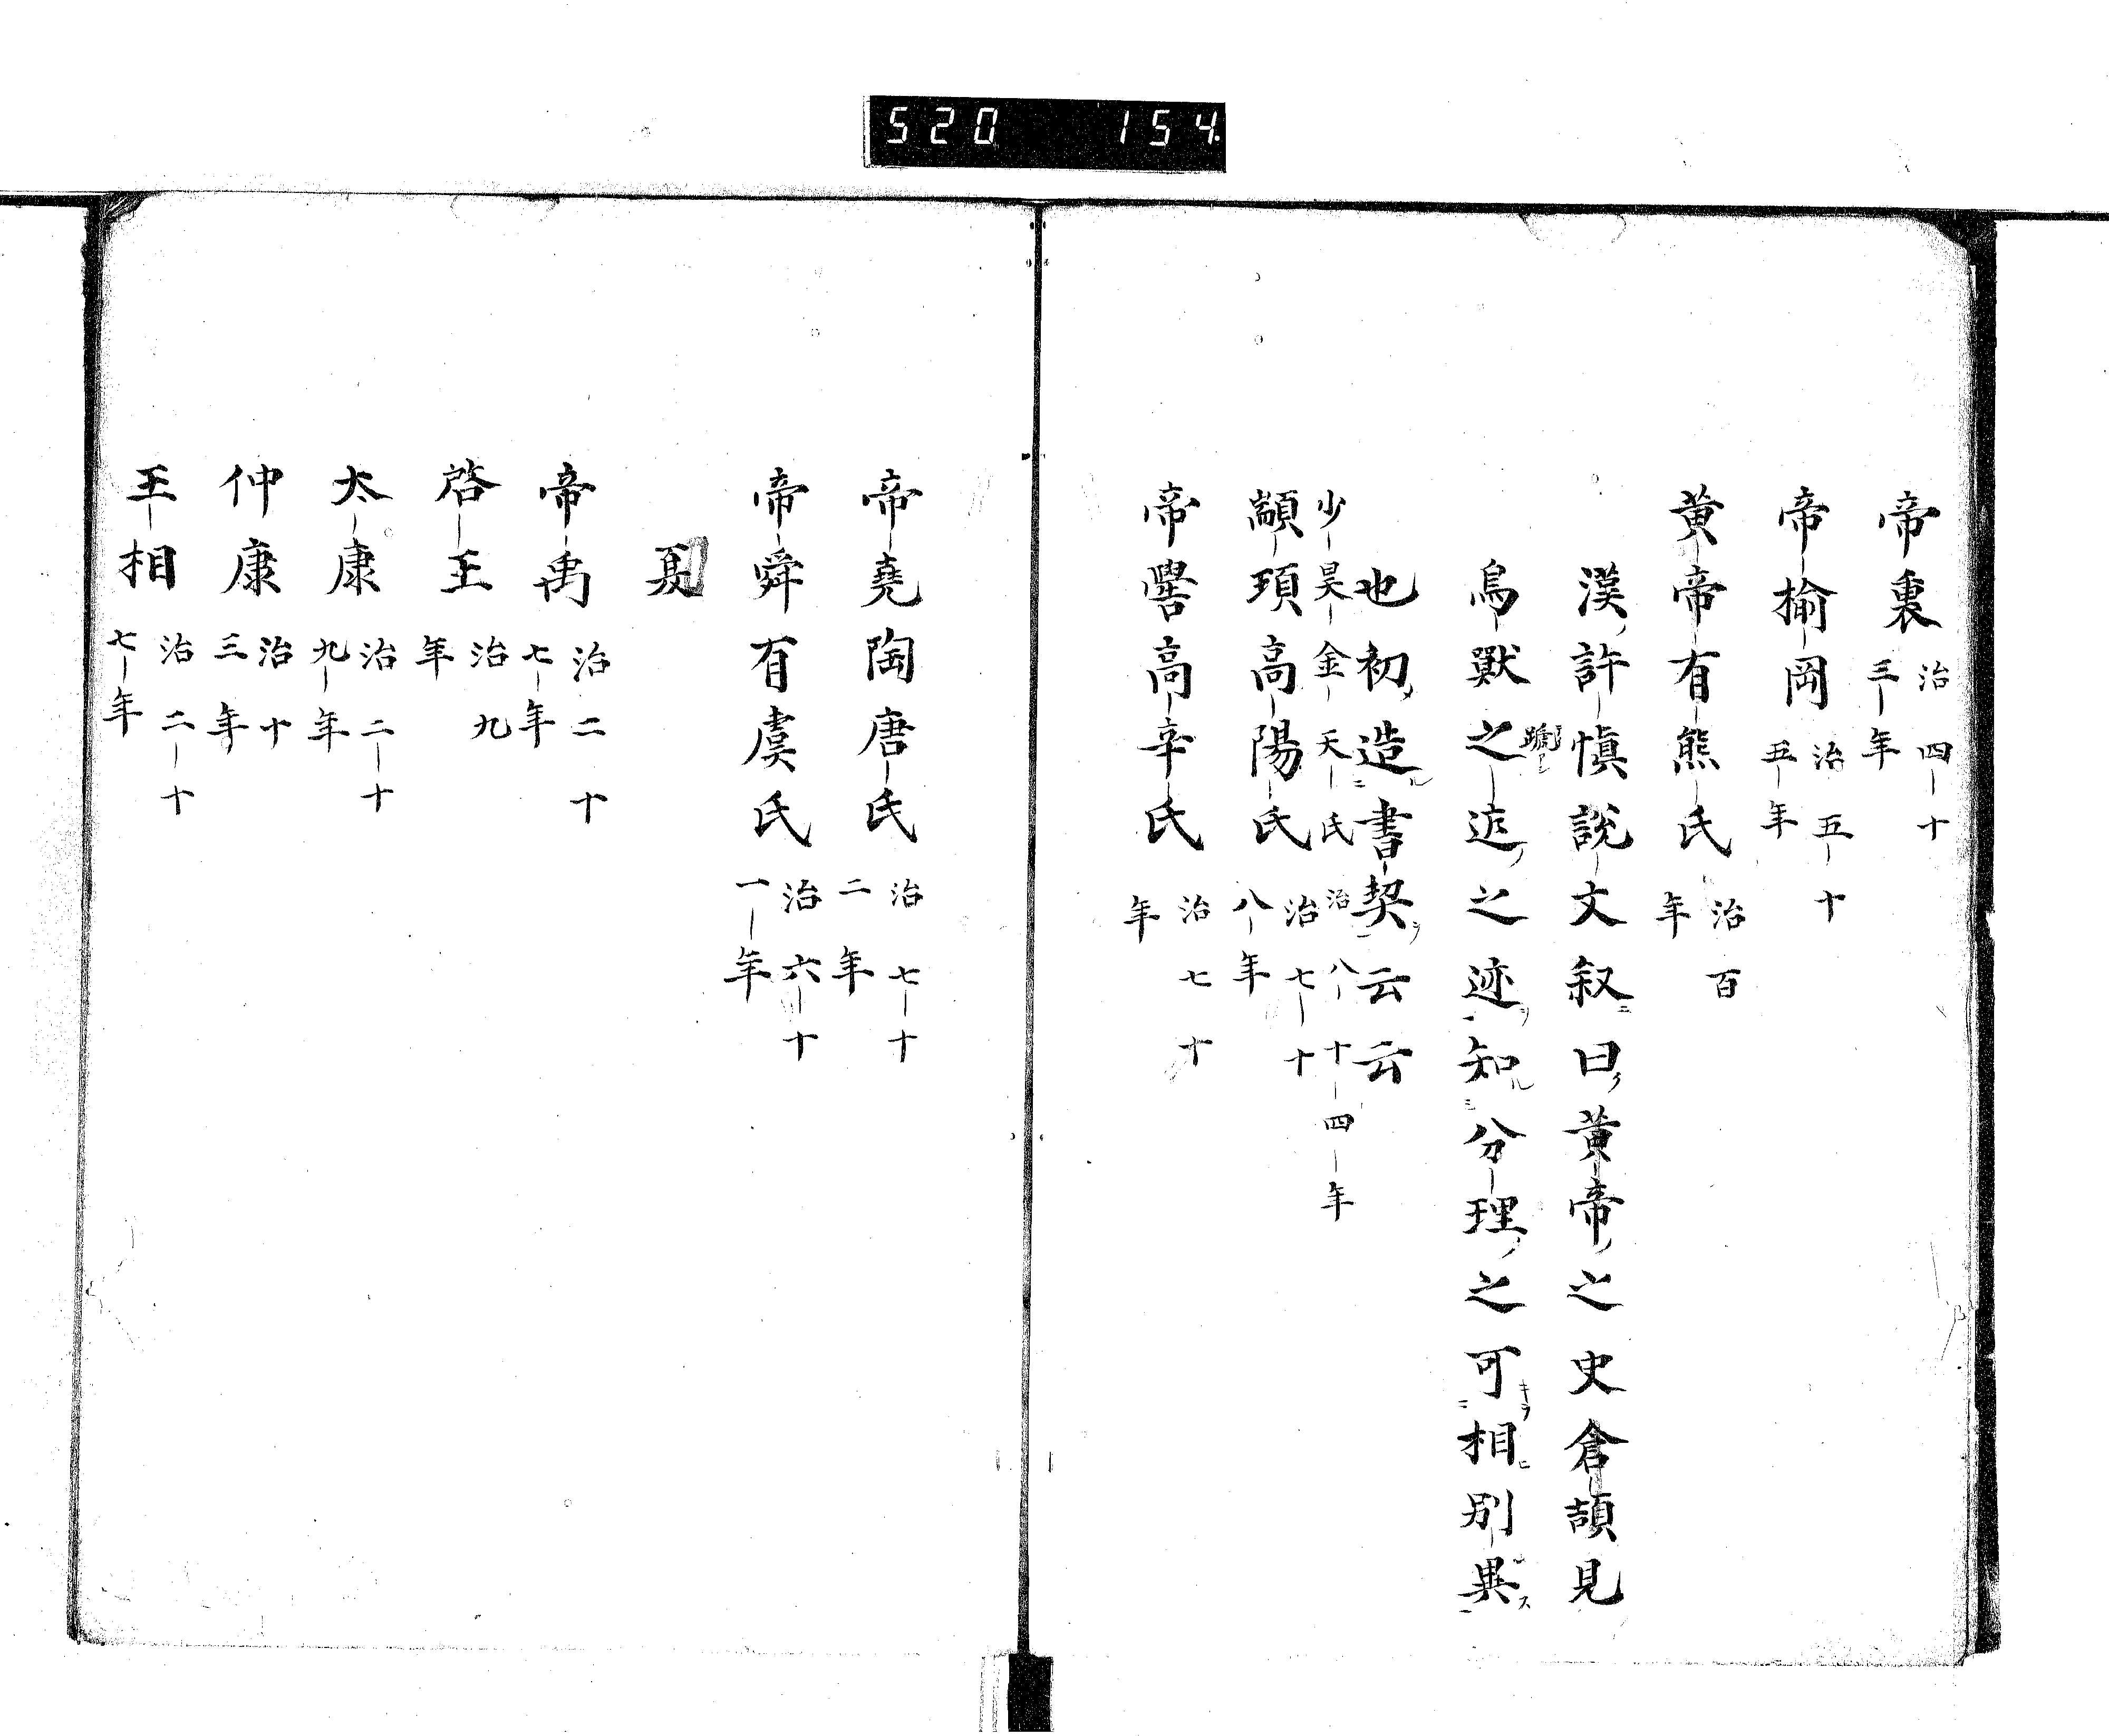 520 154
帝裏治四十三年
帝揄岡治五十五年
黄帝有熊氏治百年
漢許慎説文叙曰黄帝之史倉頡見
鳥獣之迒之迹知分理之可相別異
也初造書契云云
少昊金天氏治八十四年
顓頊高陽氏治七十八年
帝嚳高辛氏治七十年
帝堯陶唐氏治七十二年
帝舜有虞氏治六十一年
夏
帝禹治二十七年
啓王治九年
太康治二十九年
仲康治十三年
王相治二十七年